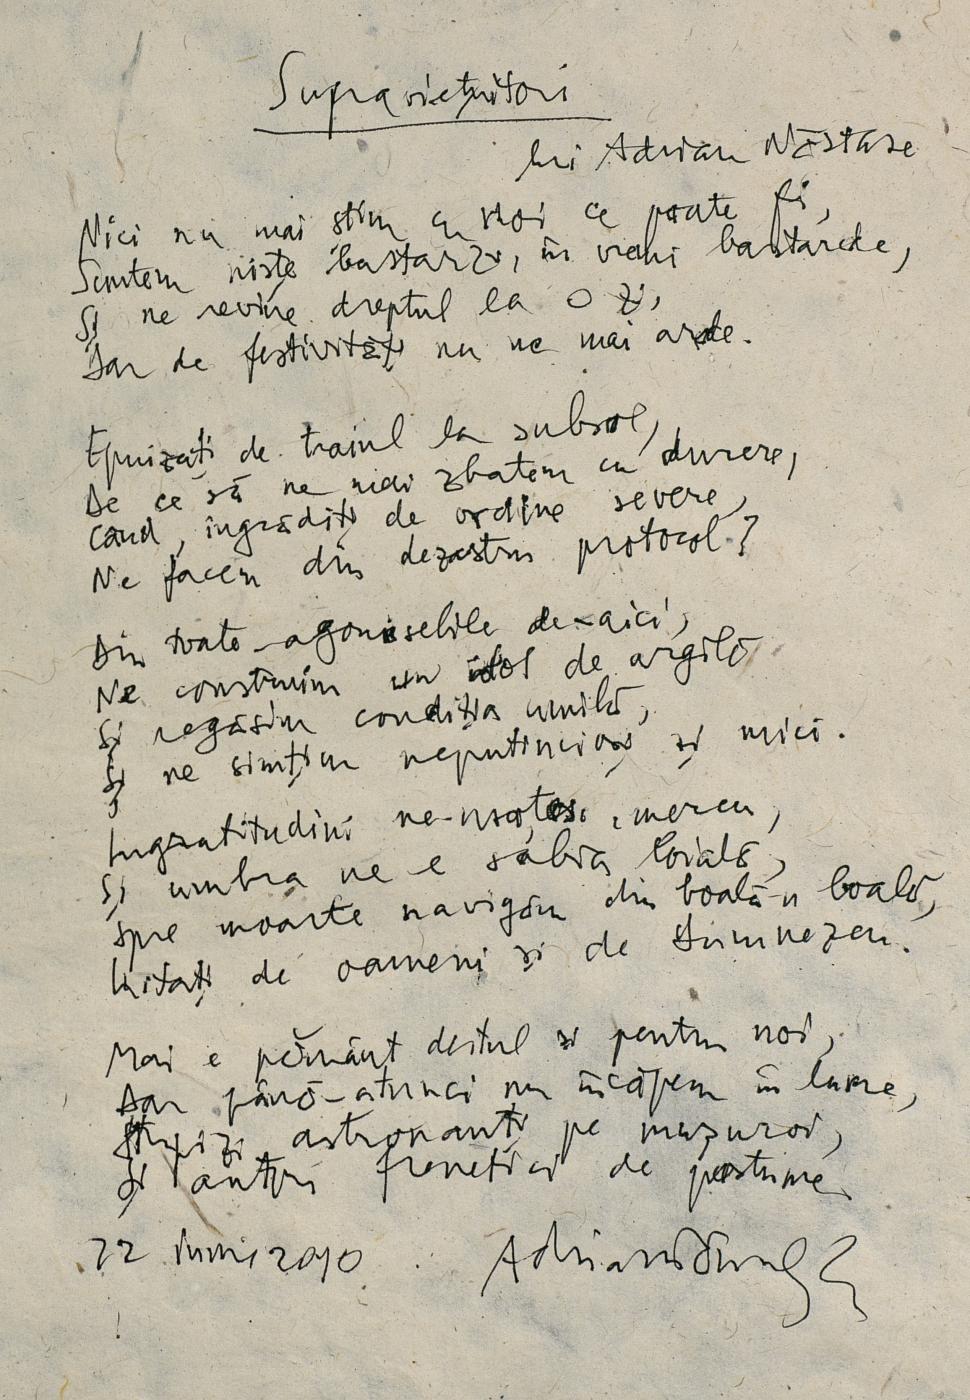 Supraviețuitori
lui Adrian Năstase
Nici nu mai știm cu noi ce poate fi,
Suntem niște bastarzi, în vremi bastarde,
Și ne revine dreptul la o zi,
Dar de festivități nu ne mai arde.
Epuizați de traiul la subsol,
De ce să ne mai zbatem cu durere,
Când, îngrădiți de ordine severe,
Ne facem din dezastru protocol?
Din toate-agoniselile de-aici,
Ne construim un idol de argilă
Și regăsim condiția umilă,
Și ne simțim neputincioși și mici.
Ingratitudini ne-nsoțesc mereu,
Și umbra ne e sabia loială,
Spre moarte navigăm din boală-n boală,
Uitați de oameni și de Dumnezeu.
Mai e pământ destul și pentru noi,
Dar până-atunci nu încăpem în lume,
Stupizi astronauți pe mușuroi,
Și autori frenetici de postume.
22 iunie 2010 Adrian Păunescu